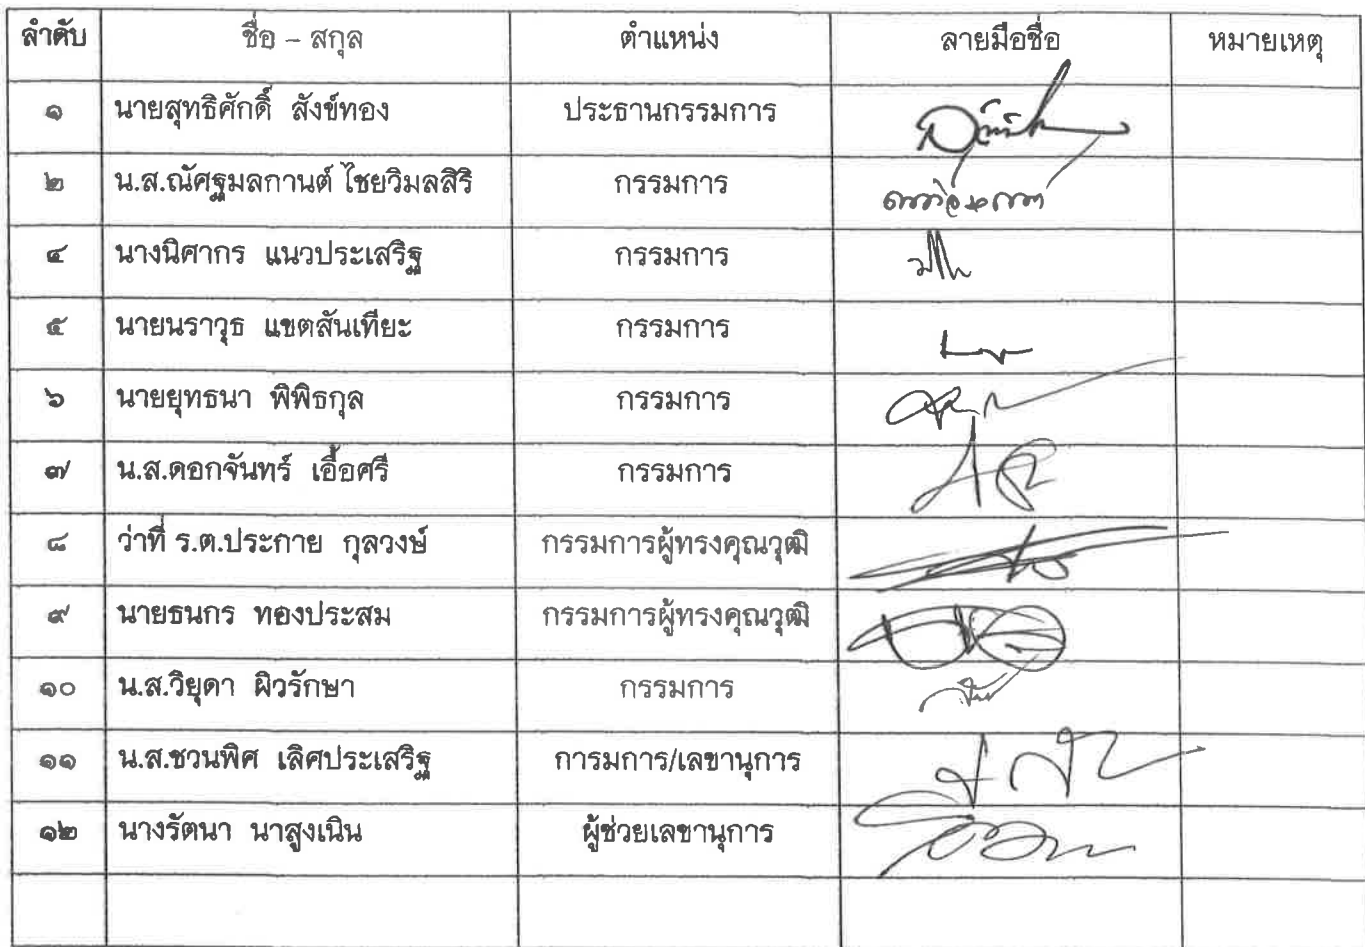 ลำดับ ชื่อ – สกุล ตำแหน่ง ลายมือชื่อ หมายเหตุ
๑ นายสุทธิศักดิ์ สังข์ทอง ประธานกรรมการ
๒ น.ส.ณัศฐมลกานต์ ไชยวิมลสิริ กรรมการ
๔ นางนิศากร แนวประเสริฐ กรรมการ
๕ นายนราวุธ แขตสันเทียะ กรรมการ
๖ นายยุทธนา พิพิธกุล กรรมการ
๗ น.ส.ดอกจันทร์ เอื้อศรี กรรมการ
๘ ว่าที่ ร.ต.ประกาย กุลวงษ์ กรรมการผู้ทรงคุณวุฒิ
๙ นายธนกร ทองประสม กรรมการผู้ทรงคุณวุฒิ
๑๐ น.ส.วิยุดา ผิวรักษา กรรมการ
๑๑ น.ส.ชวนพิศ เลิศประเสริฐ การมการ/เลขานุการ
๑๒ นางรัตนา นาสูงเนิน ผู้ช่วยเลขานุการ